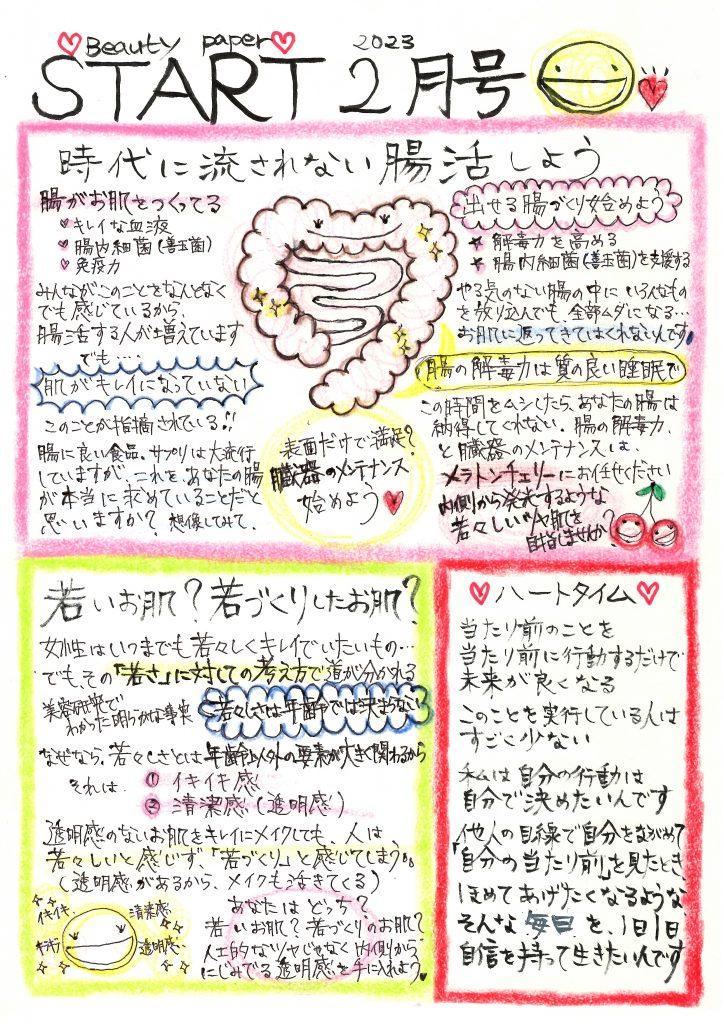 Beauty paper
2023
START 2月号
時代に流されない腸活しよう
腸がお肌をつくってる
キレイな血液
腸内細菌(善玉菌)
免疫力
みんながこのことをなんとなく
でも感じているから、
腸活する人が増えています
でも….
肌がキレイになっていない
このことが指摘されている!!
腸に良い食品。サプリは大流行
していますが、これを、あなたの腸
が本当に求めていることだと
思いますか?想像してみて、
表面だけで満足?
臓器のメンテナンス
始めよう
出せる腸づくり始めよう
★ 解毒力を高める
★ 腸内細菌(善玉菌)を支援する
やる気のない腸の中にいろんなもの
を放り込んでも、全部ムダになる…
お肌に返ってきてはくれないんです
腸の解毒力は質の良い睡眠で
この時間をムシしたら、あなたの腸は
納得してくれない。腸の解毒力、
と臓器のメンテナンスは、
メラトンチェリーにお任せください
内側から発光するような
若々しいツヤ肌を
目指しませんか?
若いお肌?若づくりしたお肌?
女性はいつまでも若々しくキレイでいたいもの…
でも、その「若さ」に対しての考え方で道が分かれる
美容研究で
わかった明らかな事実
若々しさは年齢では決まらない
なぜなら。若々しさとは年齢以外の要素が大きく関わるから
それは
① イキイキ感
② 清潔感(透明感)
透明感のないお肌をキレイにメイクしても、人は
若々しいと感じず、「若づくり」と感じてしまう。
(透明感があるから、メイクも活きてくる)
あなたはどっち?
若いお肌?若づくりのお肌?
人工的なツヤじゃなく内側から
にじみでる透明感を手に入れよう
イキイキ
清潔感
キラキラ
透明感
ハートタイム
当たり前のことを
当たり前に行動するだけで
未来が良くなる
このことを実行している人は
すごく少ない
私は自分の行動は
自分で決めたいんです
他人の目線で自分をながめて
「自分の当たり前」を見たとき、
ほめてあげたくなるような、
そんな毎日を、1日1日
自信を持って生きたいんです